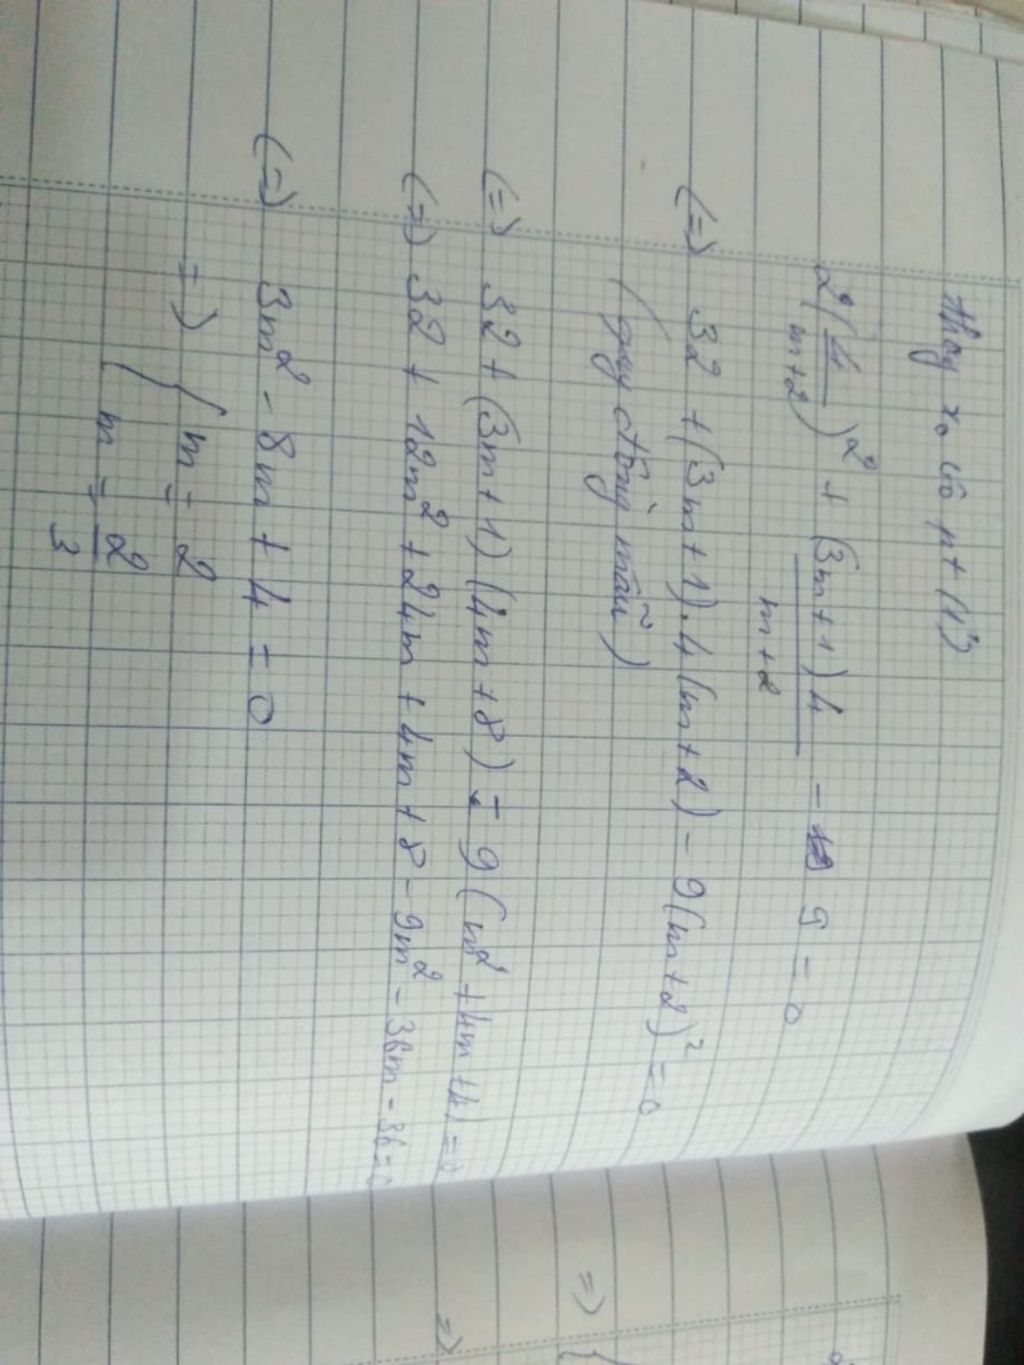 Thay x₀ vào pt (1)
2(4/(m+2))² + (3m+1)4/(m+2) - 9 = 0
(=) 32 + (3m+1).4(m+2) - 9(m+2)² = 0
(quy đồng mẫu)
(=) 32 + (3m+1)(4m+8) - 9(m²+4m+4) = 0
(=) 32 + 12m² + 24m + 4m + 8 - 9m² - 36m - 36 = 0
(=) 3m² - 8m + 4 = 0
=> { m = 2
m = 2/3
=)
=)